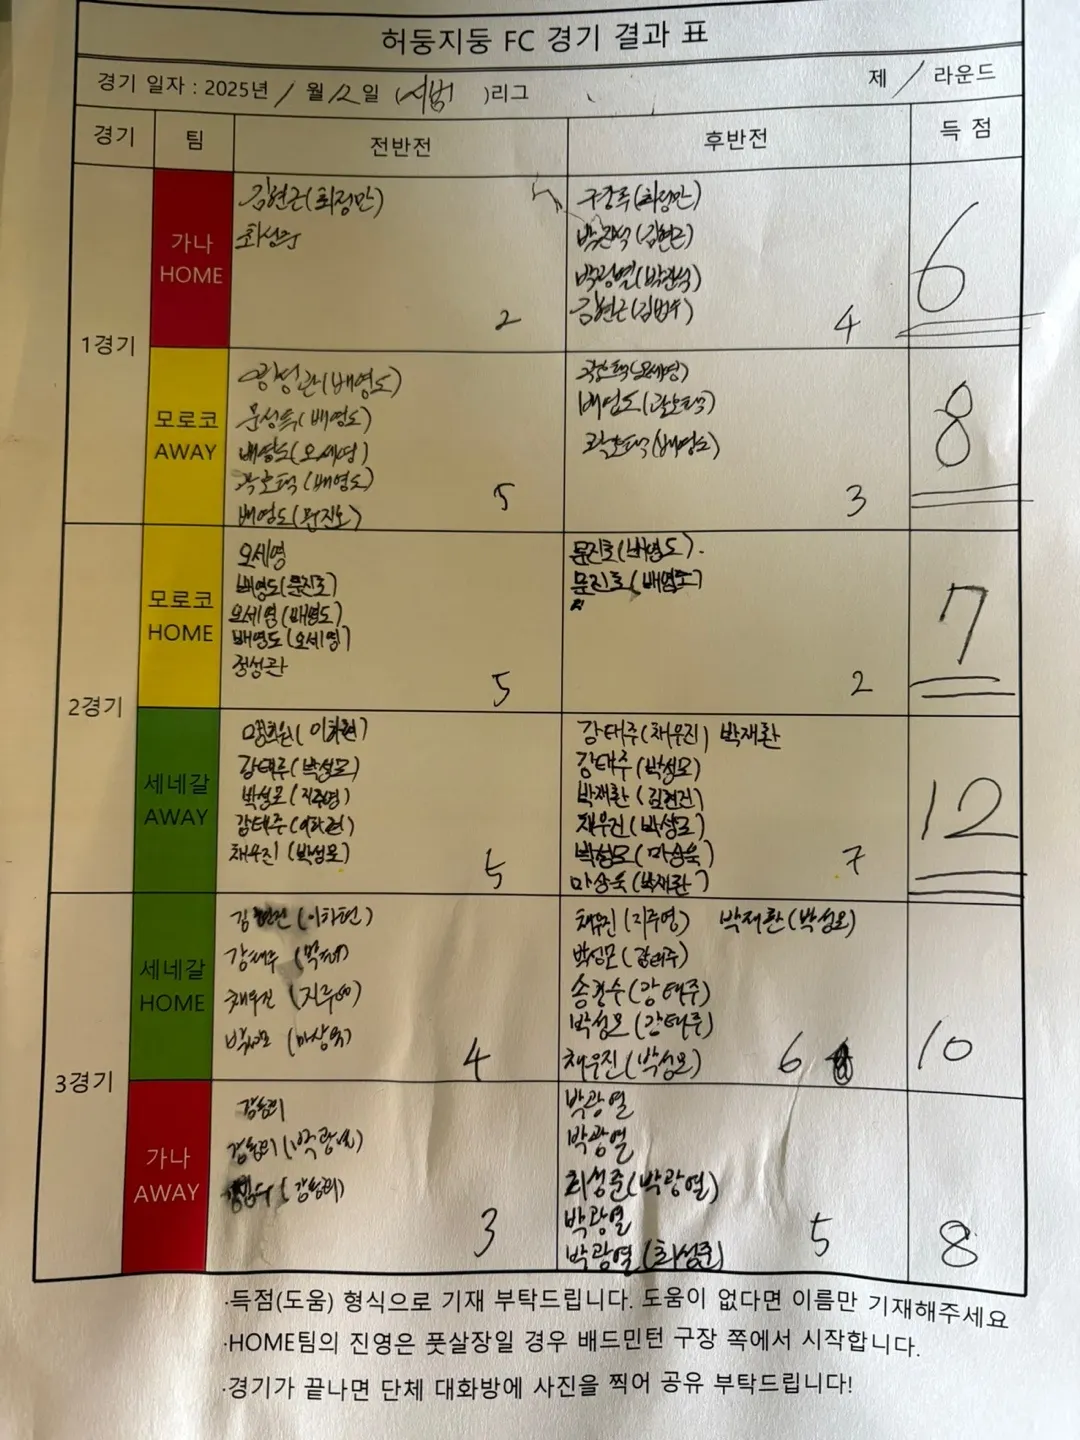 허둥지둥 FC 경기 결과 표
경기 일자 : 2025년 1 월 12 일 (시범 )리그 제 1 라운드
경기 팀 전반전 후반전 득 점
1경기
가나
HOME
김현근(최정만)
최성준
2
구강욱(최정만)
박진석(김현근)
박광열(박진석)
김현근(김범수)
4
6
모로코
AWAY
정성관(배영도)
문성특(배영도)
배영도(오세영)
곽호택(배영도)
배영도(문진호)
5
곽호택(오세영)
배영도(곽호택)
곽호택(배영도)
3
8
2경기
모로코
HOME
오세영
배영도(문진호)
오세영(배영도)
배영도(오세영)
정성관
5
문진호(배영도).
문진호(배영도)
2
7
세네갈
AWAY
(이하현)
강태주(박성모)
박성모(지주영)
강태주(이하현)
채우진(박성모)
5
강태주(채우진) 박재환
강태주(박성모)
박재환(김현진)
채우진(박성모)
박성모(마상욱)
마상욱(박재환)
7
12
3경기
세네갈
HOME
김현진(이하현)
강태주(박재)
채우진(지주영)
박성모(마상욱)
4
채우진(지주영) 박재환(박성모)
박성모(강태주)
송경수(강태주)
박성모(강태주)
채우진(박성모)
6
10
가나
AWAY
강동희
강동희(박광열)
(강동희)
3
박광열
박광열
최성준(박광열)
박광열
박광열(최성준)
5
8
·득점(도움) 형식으로 기재 부탁드립니다. 도움이 없다면 이름만 기재해주세요
·HOME팀의 진영은 풋살장일 경우 배드민턴 구장 쪽에서 시작합니다.
·경기가 끝나면 단체 대화방에 사진을 찍어 공유 부탁드립니다!